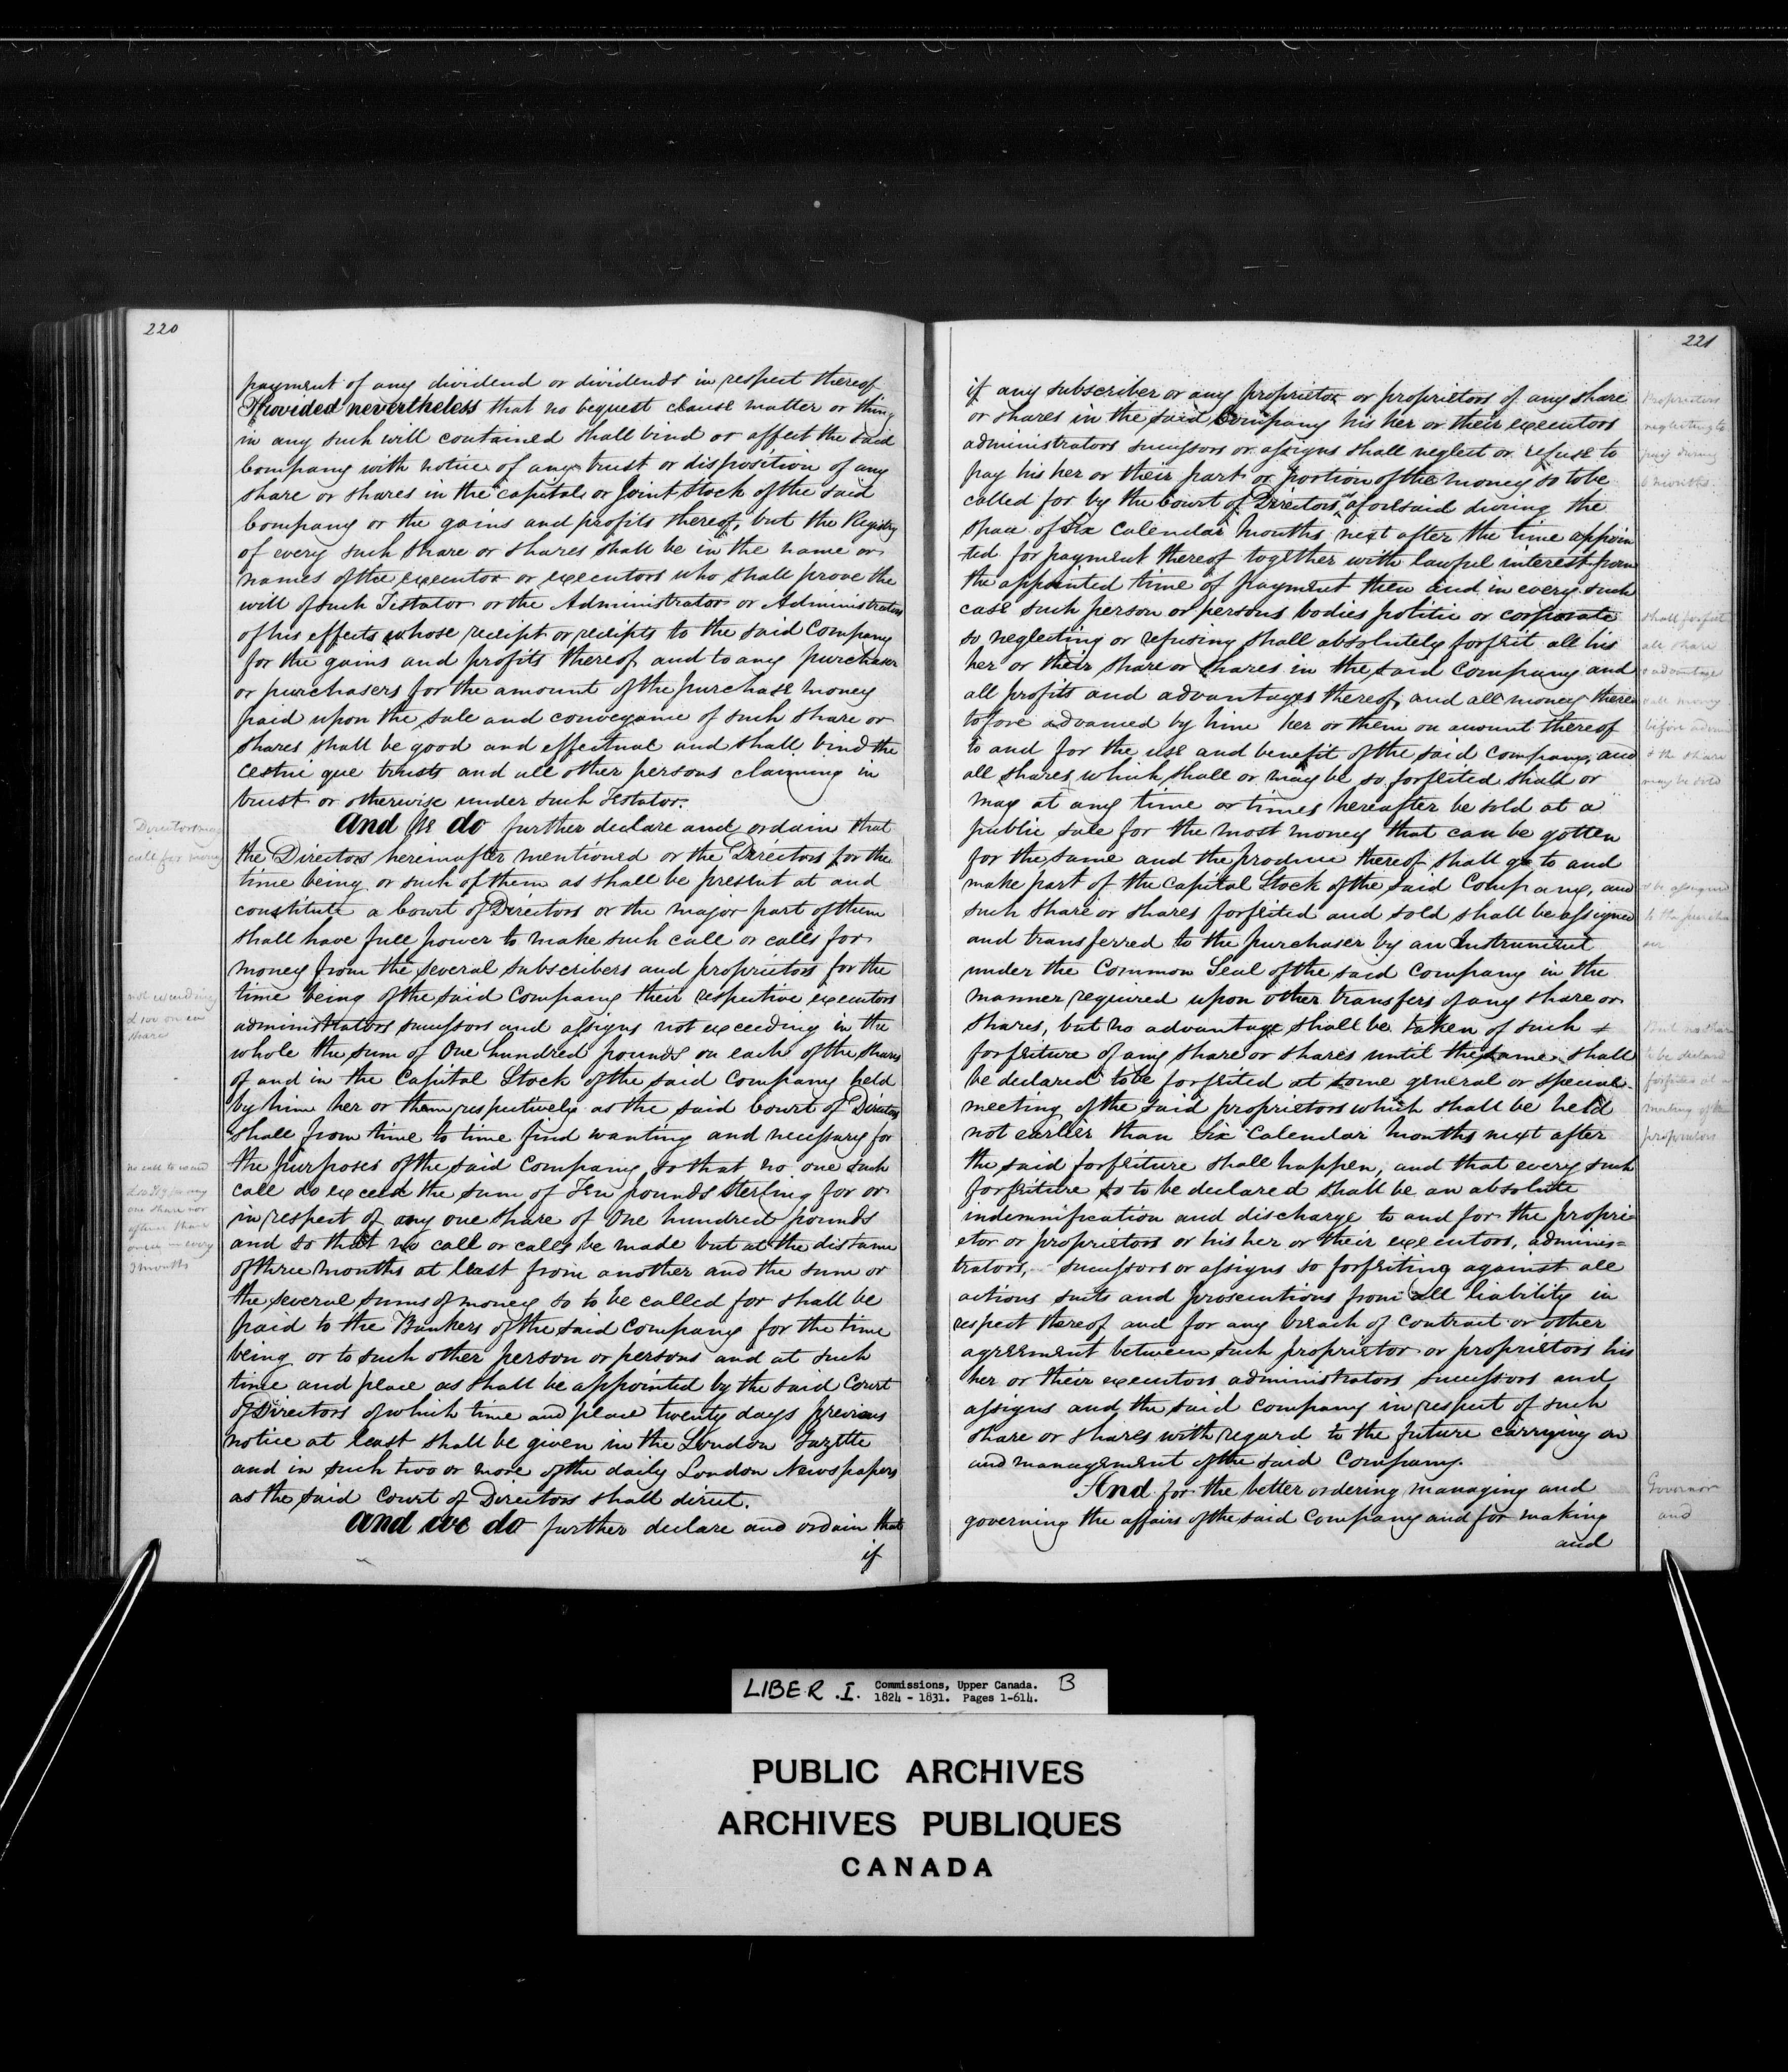 220
payment of any dividend or dividends in respect thereof
Provided nevertheless that no bequest clause matter or thing
in any such will contained shall bind or affect the said
Company with notice of any trust or disposition of any
share or shares in the capital or Joint Stock of the said
Company or the gains and profits thereof, but the Registry
of every such share or shares shall be in the name or
names of the executor or executors who shall prove the
will of such Testator or the Administrator or Administrators
of his effects whose receipt or receipts to the said Company
for the gains and profits thereof and to any purchaser
or purchasers for the amount of the purchase money
paid upon the sale and conveyance of such share or
shares shall be good and effectual and shall bind the
cestui que trusts and all other persons claiming in
trust or otherwise under such Testator.
And We do further declare and ordain that
the Directors hereinafter mentioned or the Directors for the
time being or such of them as shall be present at and
constitute a Court of Directors or the major part of them
shall have full power to make such call or calls for
money from the several subscribers and proprietors for the
time being of the said Company their respective executors
administrators successors and assigns not exceeding in the
whole the sum of One hundred pounds on each of the shares
of and in the Capital Stock of the said Company held
by him her or them respectively as the said Court of Directors
shall from time to time find wanting and necessary for
the purposes of the said Company, so that no one such
call do exceed the sum of Ten pounds Sterling for or
in respect of any one share of One hundred pounds
and so that no call or calls be made but at the distance
of three months at least from another and the sum or
the several sums of money so to be called for shall be
paid to the Bankers of the said Company for the time
being or to such other person or persons and at such
time and place as shall be appointed by the said Court
of Directors of which time and place twenty days previous
notice at least shall be given in the London Gazette
and in such two or more of the daily London Newspapers
as the said Court of Directors shall direct.
and we do further declare and ordain that
if
Directors may
call for money
not exceeding
£100 on ea
share
no call to exceed
one share nor
oftener than
once in every
3 months
221
if any subscriber or any proprietor or proprietors of any share
or shares in the said Company his her or their executors
administrators successors or assigns shall neglect or refuse to
pay his her or their part or portion of the money so to be
called for by the Court of Directors as aforesaid during the
space of Six Calendar months next after the time appoin
ted for payment thereof together with lawful interest from
the appointed time of payment then and in every such
case such person or persons bodies politic or corporate
so neglecting or refusing shall absolutely forfeit all his
her or their share or shares in the said Company and
all profits and advantages thereof, and all money there
tofore advanced by him her or them on account thereof
to and for the use and benefit of the said Company, and
all shares which shall or may be so forfeited shall or
may at any time or times hereafter be sold at a
public sale for the most money that can be gotten
for the same and the produce thereof shall go to and
make part of the Capital Stock of the said Company, and
such share or shares forfeited and sold shall be assigned
and transferred to the purchaser by an Instrument
under the Common Seal of the said Company in the
manner required upon other transfers of any share or
shares, but no advantage shall be taken of such
forfeiture of any share or shares until the same shall
be declared to be forfeited at some general or special
meeting of the said proprietors which shall be held
not earlier than Six Calendar months next after
the said forfeiture shall happen, and that every such
forfeiture so to be declared shall be an absolute
indemnification and discharge to and for the propri=
etor or proprietors or his her or their executors, adminis=
trators, successors or assigns so forfeiting against all
actions suits and prosecutions from all liability in
respect thereof and for any breach of contract or other
agreement between such proprietor or proprietors his
her or their executors administrators successors and
assigns and the said company in respect of such
share or shares with regard to the future carrying on
and management of the said Company.
And for the better ordering managing and
governing the affairs of the said Company and for making
and
Proprietors
neglecting to
pay during
6 months
shall forfeit
all share
& advantage
& all money
before advan
& the share
may be sold
to be assigned
to the purcha
ser
But no share
to be declared
forfeited at a
meeting of the
proprietors
Governor
and
LIBER .I. Commissions, Upper Canada. B
1824 - 1831. Pages 1-614.
PUBLIC ARCHIVES
ARCHIVES PUBLIQUES
CANADA